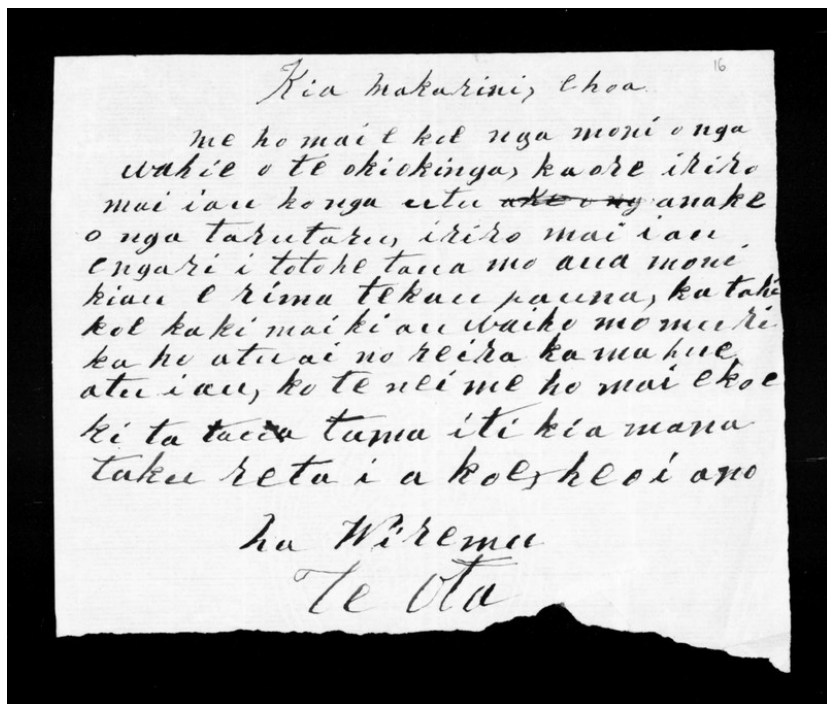 16
Kia Makarini, ehoa
me ho mai e koe nga moni o nga
wahie o te okiokinga, kaore iriro
mai iau ko nga utu ake o ng anake
o nga tarutaru, iriro mai iau
engari i totohe taua mo aua moni
kiau e rima tekau pauna, ka tahi
koe ka ki mai ki au waiho mo muri
ka ho atu ai no reira ka mahue
atu i au, ko te nei me ho mai ekoe
ki ta taua tama iti kia mana
taku reta i a koe, heoi ano
na Wiremu
Te Ota